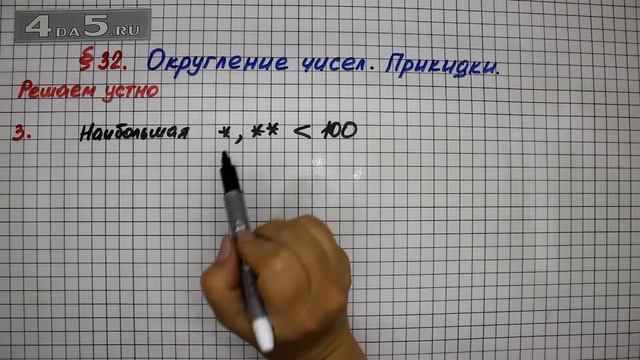 4DA5.RU
§ 32. Округление чисел. Прикидки.
Решаем устно
3. Наибольшая *,** < 100